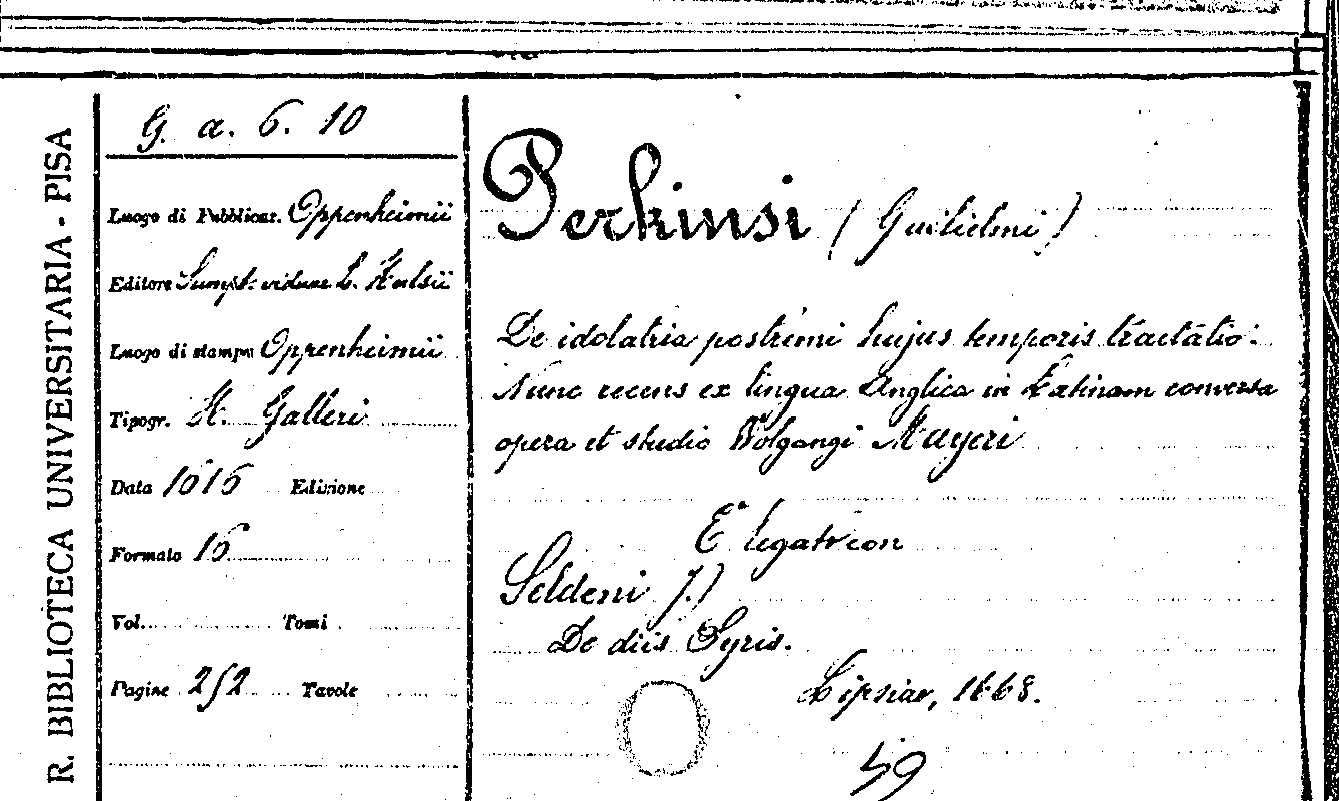 R. BIBLIOTECA UNIVERSITARIA - PISA
G. a. 6. 10
Luogo di Pubblicaz. Oppenheimii
Editore Sumpt. viduae L. Hulsii
Luogo di stampa Oppenheimii
Tipogr. H. Galleri
Data 1616 Edizione
Formato 16
Vol. Tomi
Pagine 252 Tavole
Perkinsi (Guilielmi)
De idolatria postremi hujus temporis tractatio:
Nunc recens ex lingua Anglica in Latinam conversa
opera et studio Wolgangi Mayeri
È legatr con
Seldeni J.)
De diis Syris.
Lipsiae, 1668.
49